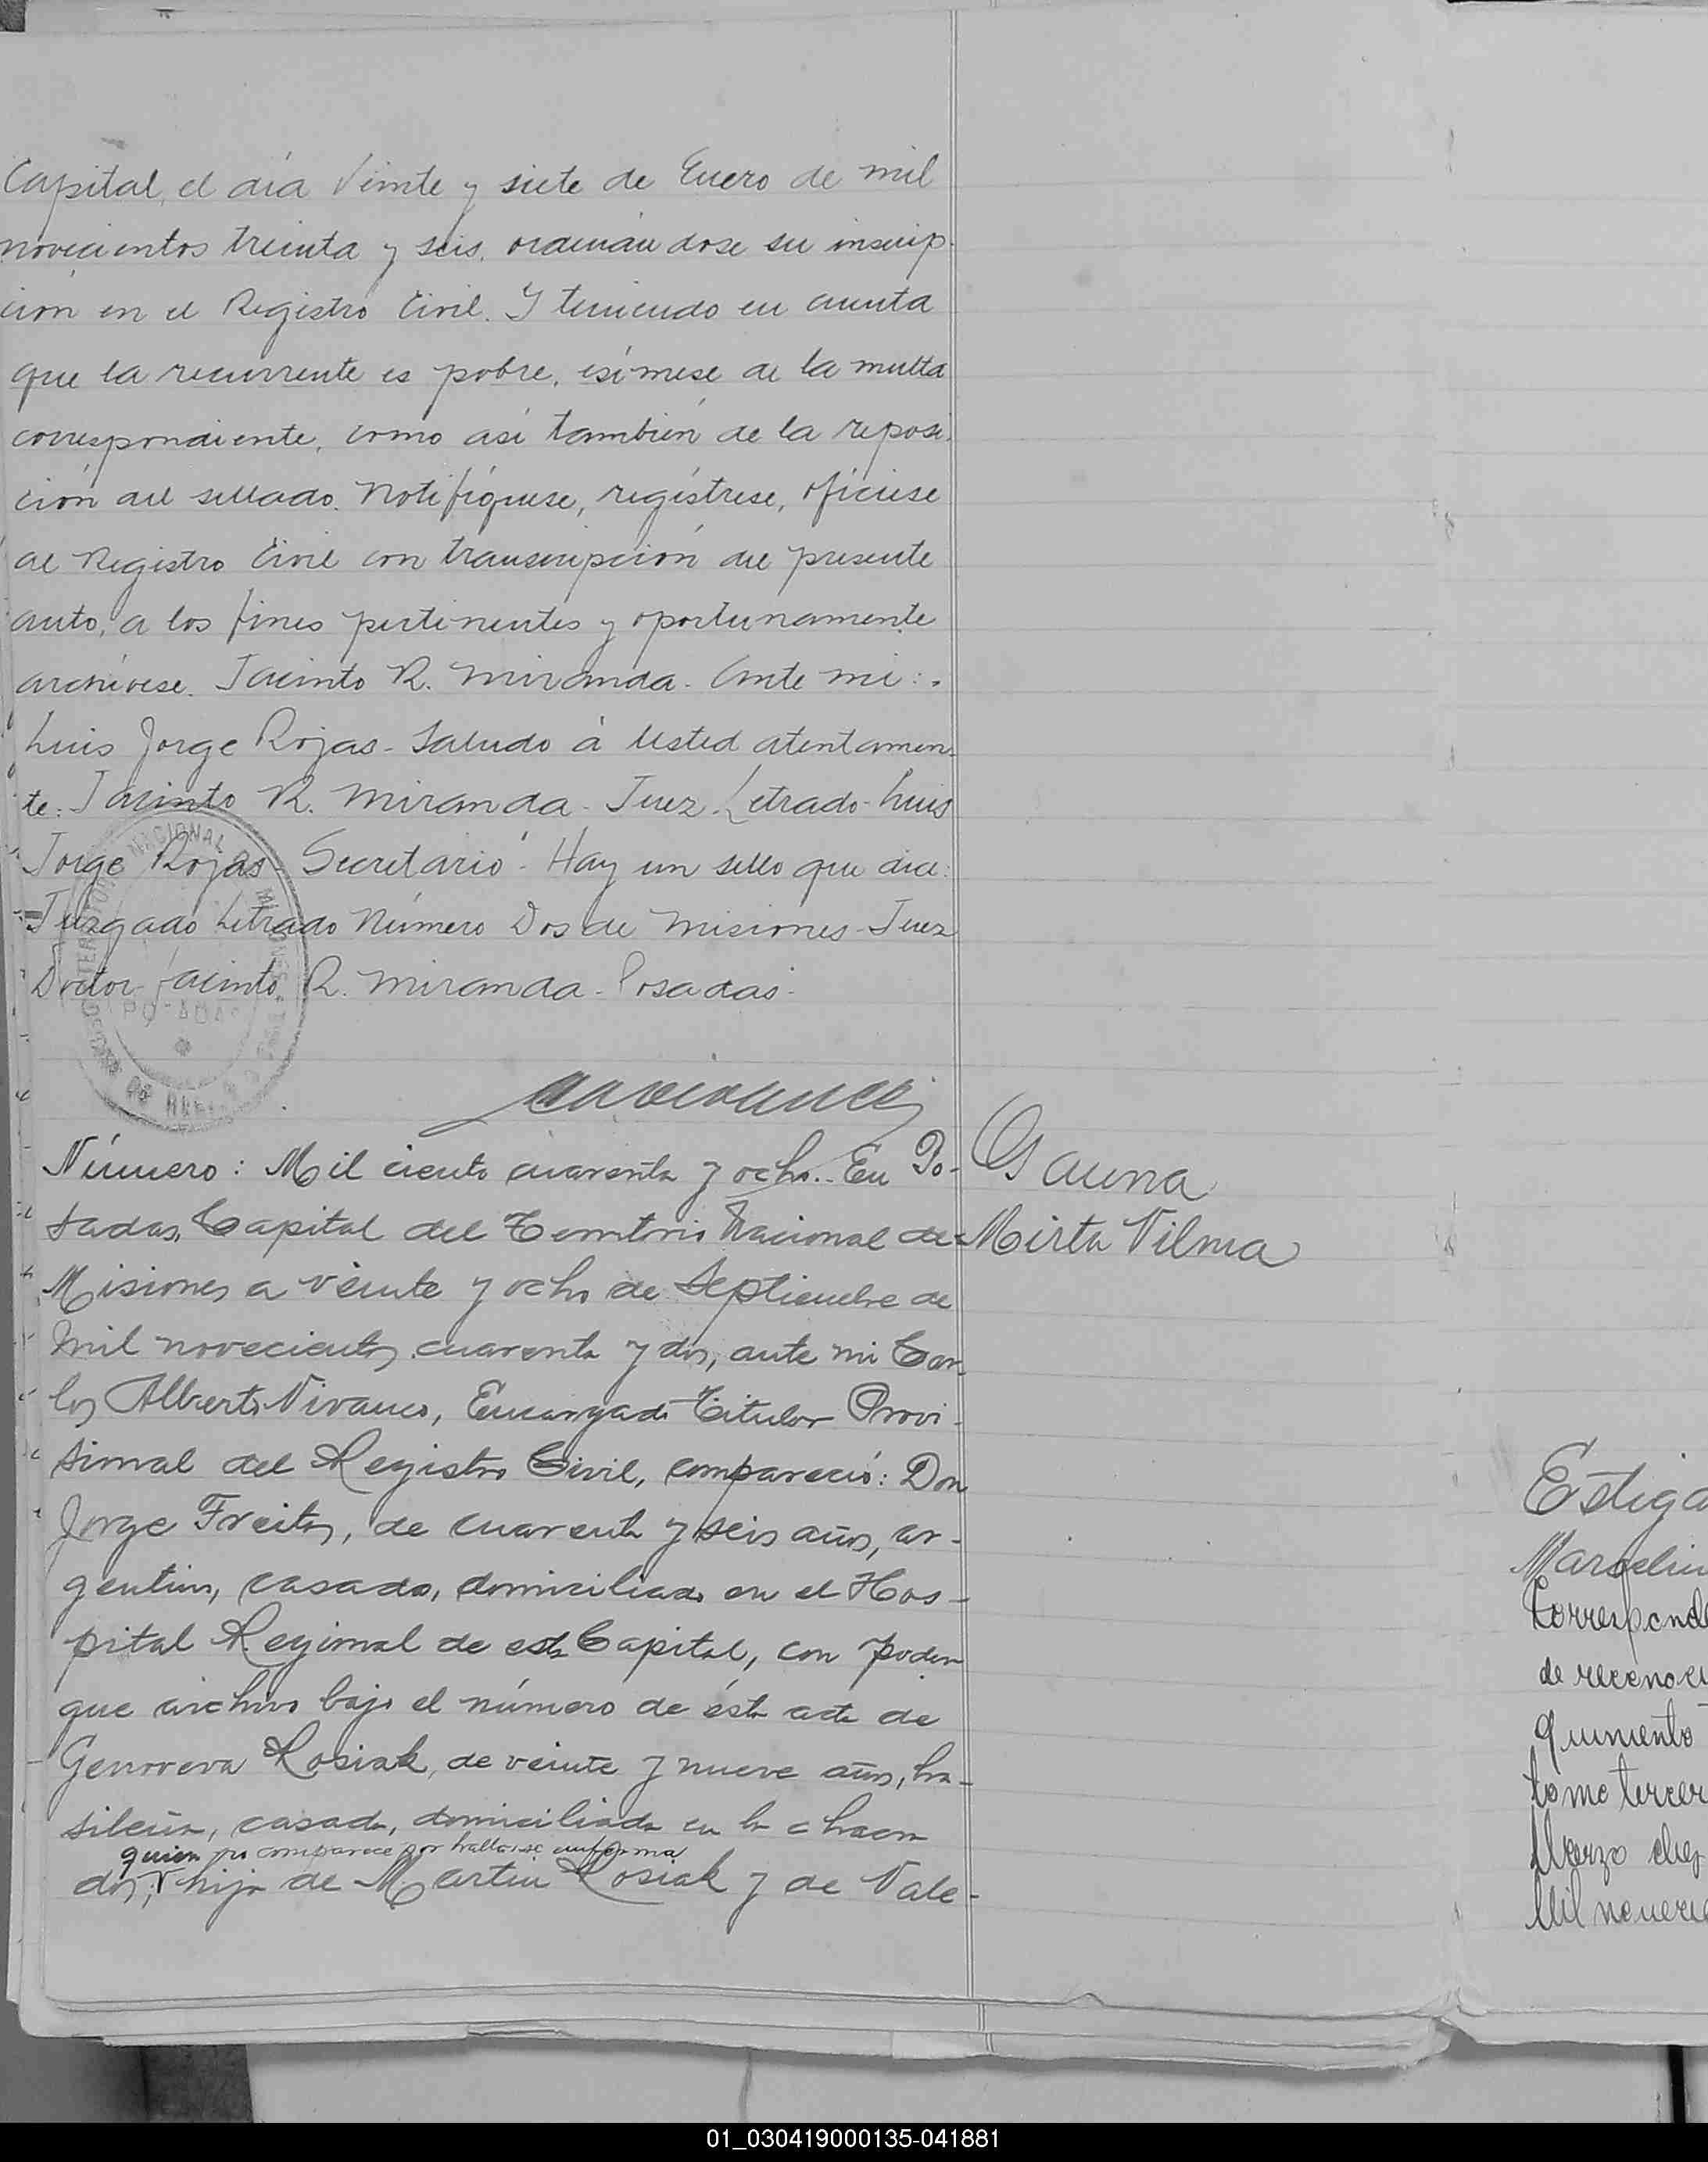 Capital, el día Veinte y siete de Enero de mil
novecientos treinta y seis, ordenándose su inscrip-
ción en el Registro Civil. Y teniendo en cuenta
que la recurrente es pobre, exímese de la multa
correspondiente, como así también de la reposi-
ción del sellado. Notifíquese, regístrese, ofíciese
al Registro Civil con transcripción del presente
auto, a los fines pertinentes y oportunamente
archívese. Jacinto R. Miranda. Ante mi:.
Luis Jorge Rojas - Saludo á Usted atentamen-
te: Jacinto R. Miranda - Juez Letrado - Luis
Jorge Rojas - Secretario - Hay un sello que dice:
Juzgado Letrado Número Dos de Misiones - Juez
Doctor Jacinto R. Miranda - Posadas -
POSADAS
Número: Mil ciento cuarenta y ocho.. En Po-
sadas, Capital del Territorio Nacional de
Misiones a veinte y ocho de Septiembre de
mil novecientos cuarenta y dos, ante mi Car-
los Alberto Vivanco, Encargado Titular Provi-
sional del Registro Civil, compareció: Don
Jorge Freitas, de cuarenta y seis años, ar-
gentino, casado, domiciliado en el Hos-
pital Regional de esta Capital, con poder
que archivo bajo el número de ésta acta de
Genoveva Kosiak, de veinte y nueve años, bra-
sileña, casada, domiciliada en la chacra
quien no comparece por hallarse enferma
dos, hija de Martin Kosiak y de Vale-
Gauna
Mirta Vilma
Estiga
Marcelin
Corresponde
de reconoci
quiniento
tomo tercer
Marzo diez
Mil novecie
01_030419000135-041881